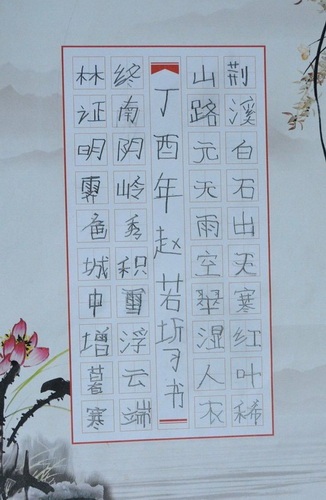 荆溪白石出天寒红叶稀
山路元无雨空翠湿人衣
丁酉年赵若习书
终南阴岭秀积雪浮云端
林证明霁色城中增暮寒